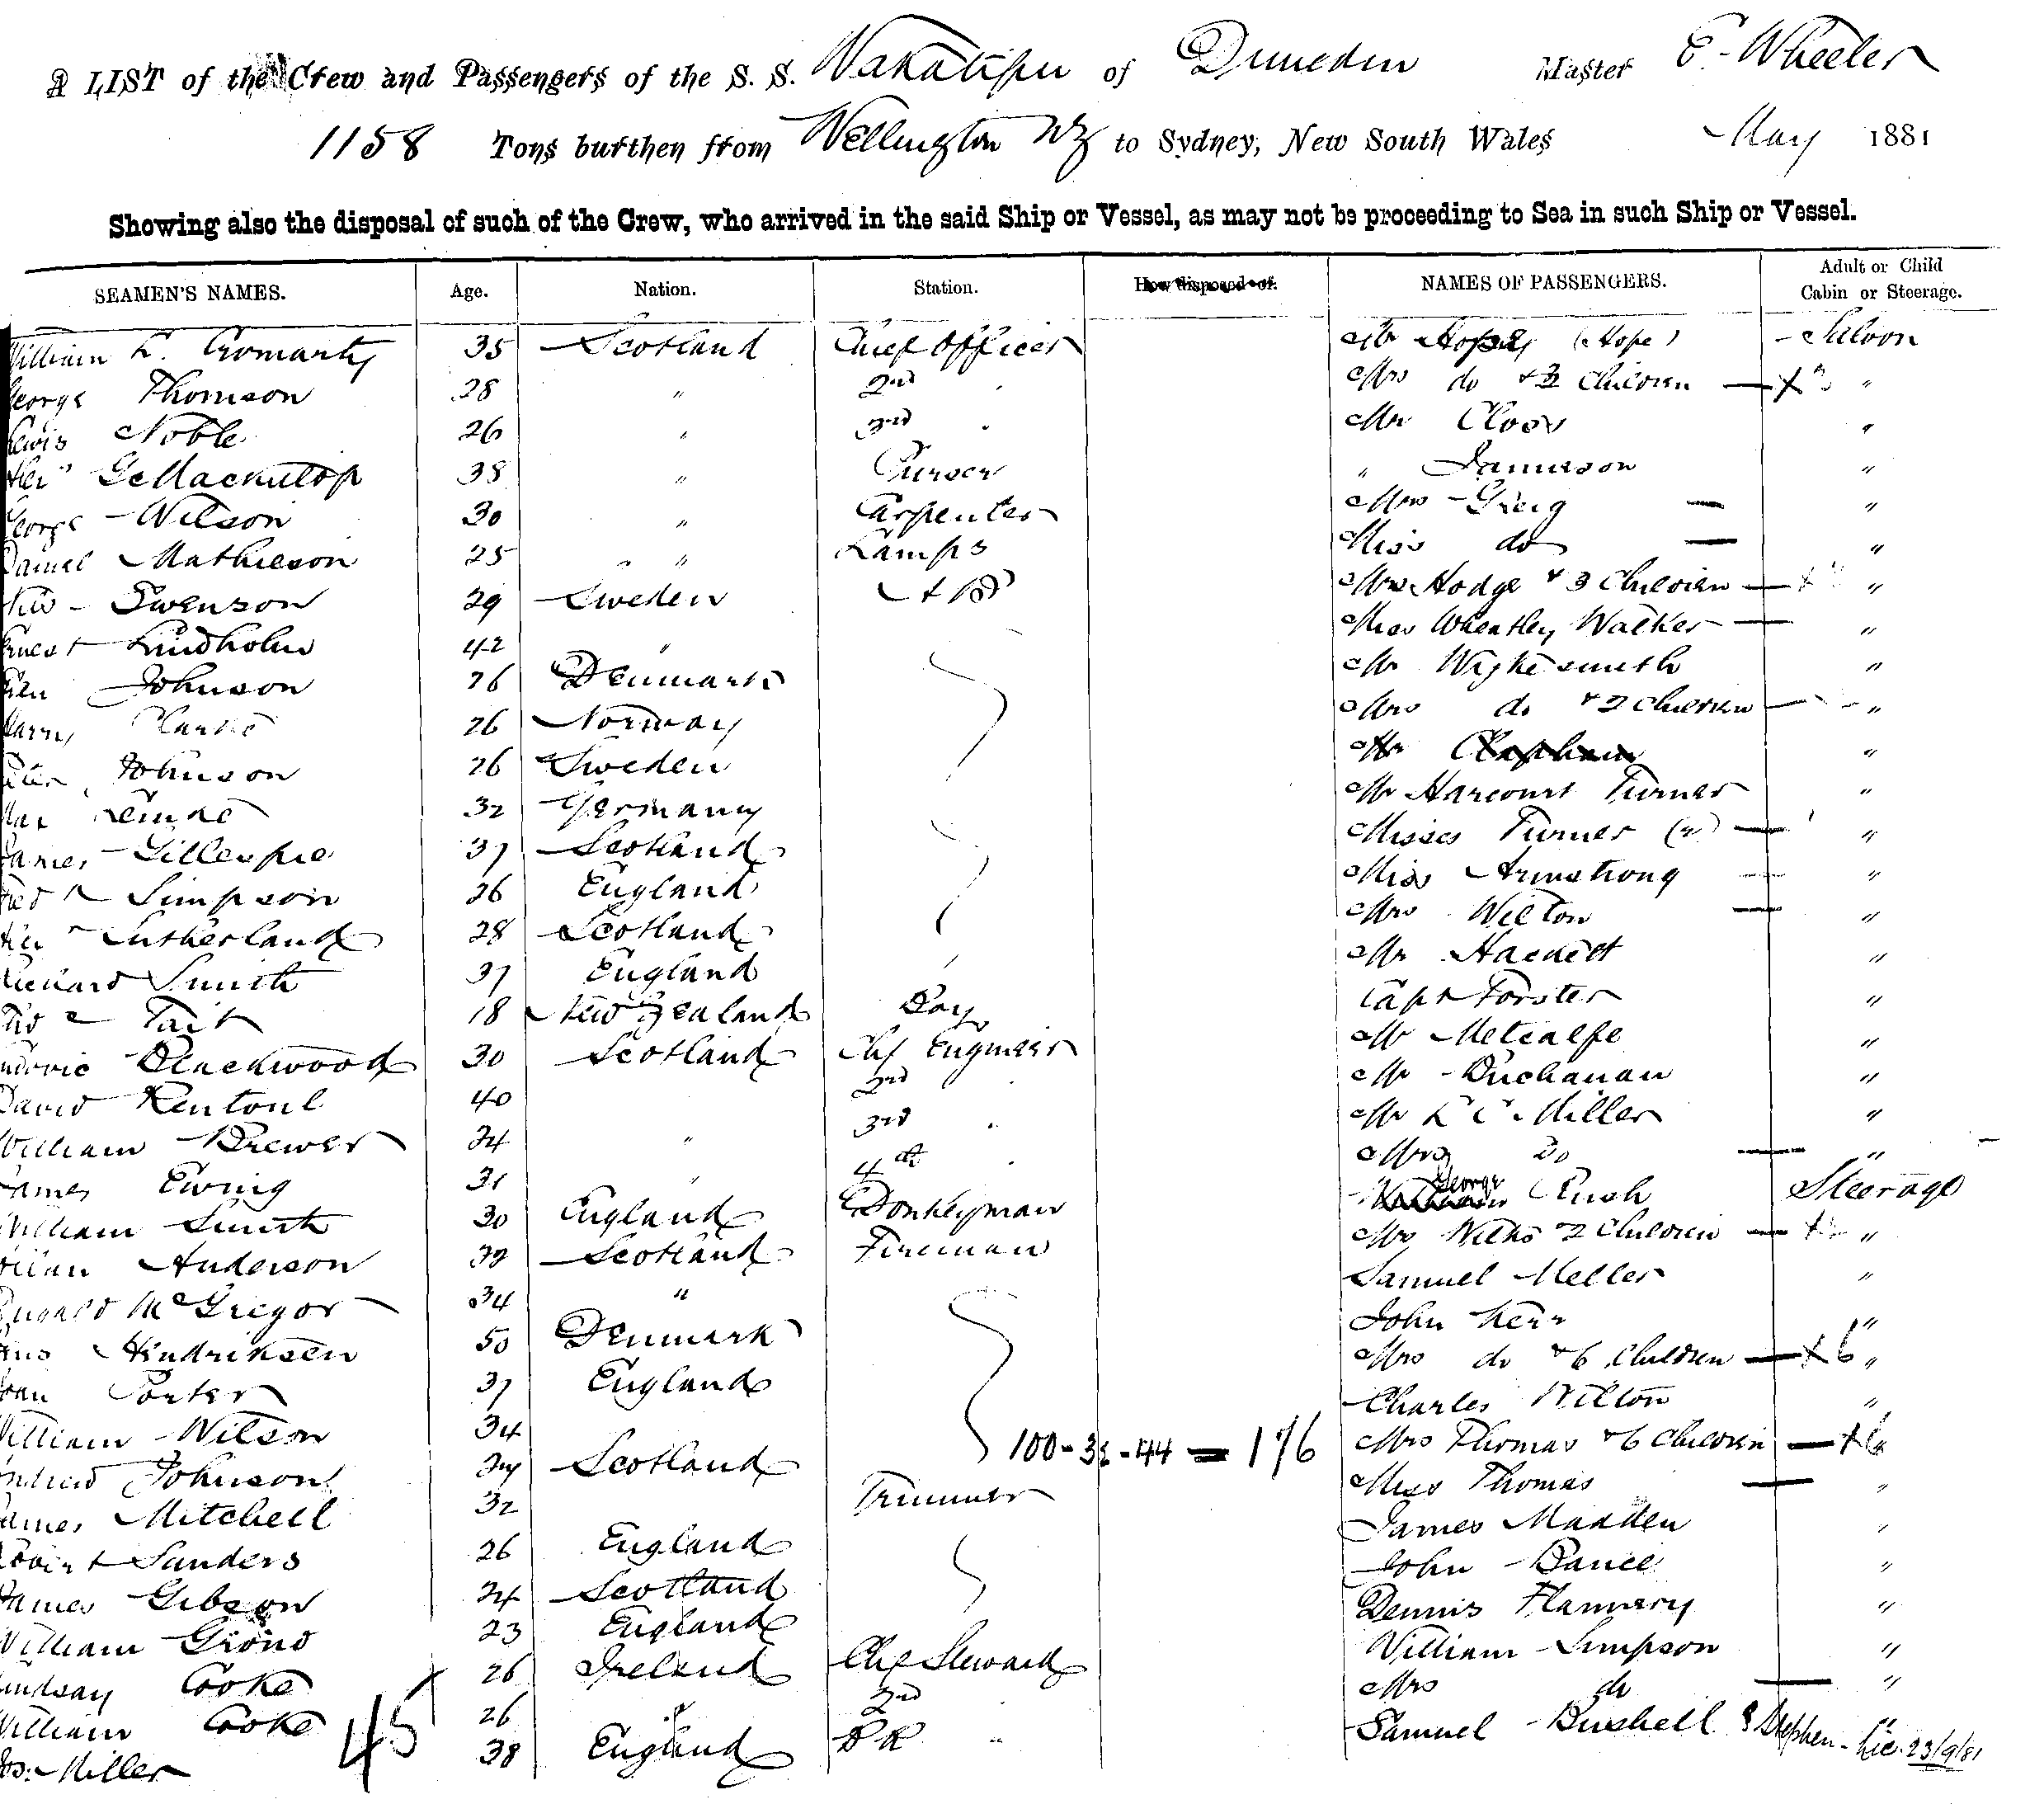 A LIST of the Crew and Passengers of the S. S. Wakatipu of Dunedin Master E. Wheeler
1158 Tons burthen from Wellington NZ to Sydney, New South Wales May 1881
Showing also the disposal of such of the Crew, who arrived in the said Ship or Vessel, as may not be proceeding to Sea in such Ship or Vessel.
SEAMEN'S NAMES. Age. Nation. Station. How disposed of. NAMES OF PASSENGERS. Adult or Child Cabin or Steerage.
William L. Cromarty 35 Scotland Chief Officer Mr (Hope) Saloon
George Thomson 28 " 2nd " Mrs do & Children "
Lewis Noble 26 " 3rd " Mr "
38 " Purser " Jamieson "
George Wilson 30 " Carpenter Mrs Greig — "
Daniel Mathieson 25 " " Lamps Miss do — "
Swenson 29 Sweden AB Mrs Hodge & 3 Children — "
Ernest Lindholm 42 " Miss Wheatley Walker — "
Johnson 26 Denmark Mr Wykesmith "
Harry 26 Norway Mrs do & 2 Children — "
Peter Johnson 26 Sweden Mr "
32 Germany Mr Harcourt Turner "
James Gillespie 37 Scotland Misses Turner (2) — "
Simpson 26 England Miss Armstrong — "
Sutherland 28 Scotland Mrs Wilton — "
Richard Smith 37 England Mr Hackett "
Tait 18 New Zealand Boy Capt Forster "
Blackwood 30 Scotland Chf Engineer Mr Metcalfe "
David Rentoul 40 2nd " Mr Buchanan "
William Brewer 24 " 3rd " Mr L C Miller "
James Ewing 31 " 4th " Mrs Do — "
William Smith 30 England Donkeyman George Rush Steerage
Anderson 32 Scotland Fireman Mrs Wilks 2 Children — "
Dugald McGregor 34 " Samuel Meller "
Hendriksen 50 Denmark John Kerr "
Porter 37 England Mrs do & 6 Children — + 6 "
William Wilson 34 Charles Wilton "
Andrew Johnson Scotland 100 - 32 - 44 = 176 Mrs Thomas & 6 Children — + 6
James Mitchell 32 Trimmer Miss Thomas — "
Robert Sanders 26 England James Madden "
James Gibson 24 Scotland John Bance "
William 23 England Dennis Flannery "
Lindsay Cooke 26 Ireland Chf Steward William Simpson "
William Cooke 26 " 2nd " Mrs do — "
Jos: Miller 45 38 England " Samuel Bushell & Stephen - 23/9/81